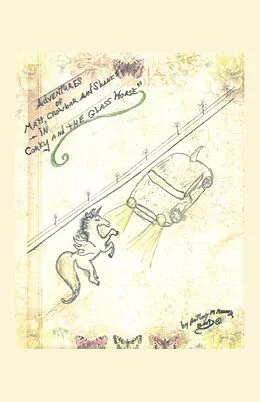 ADVENTURES
OF
MATT, CROWBAR AND SHANE
- IN -
CORKY AND THE GLASS HORSE"
by Anthony M